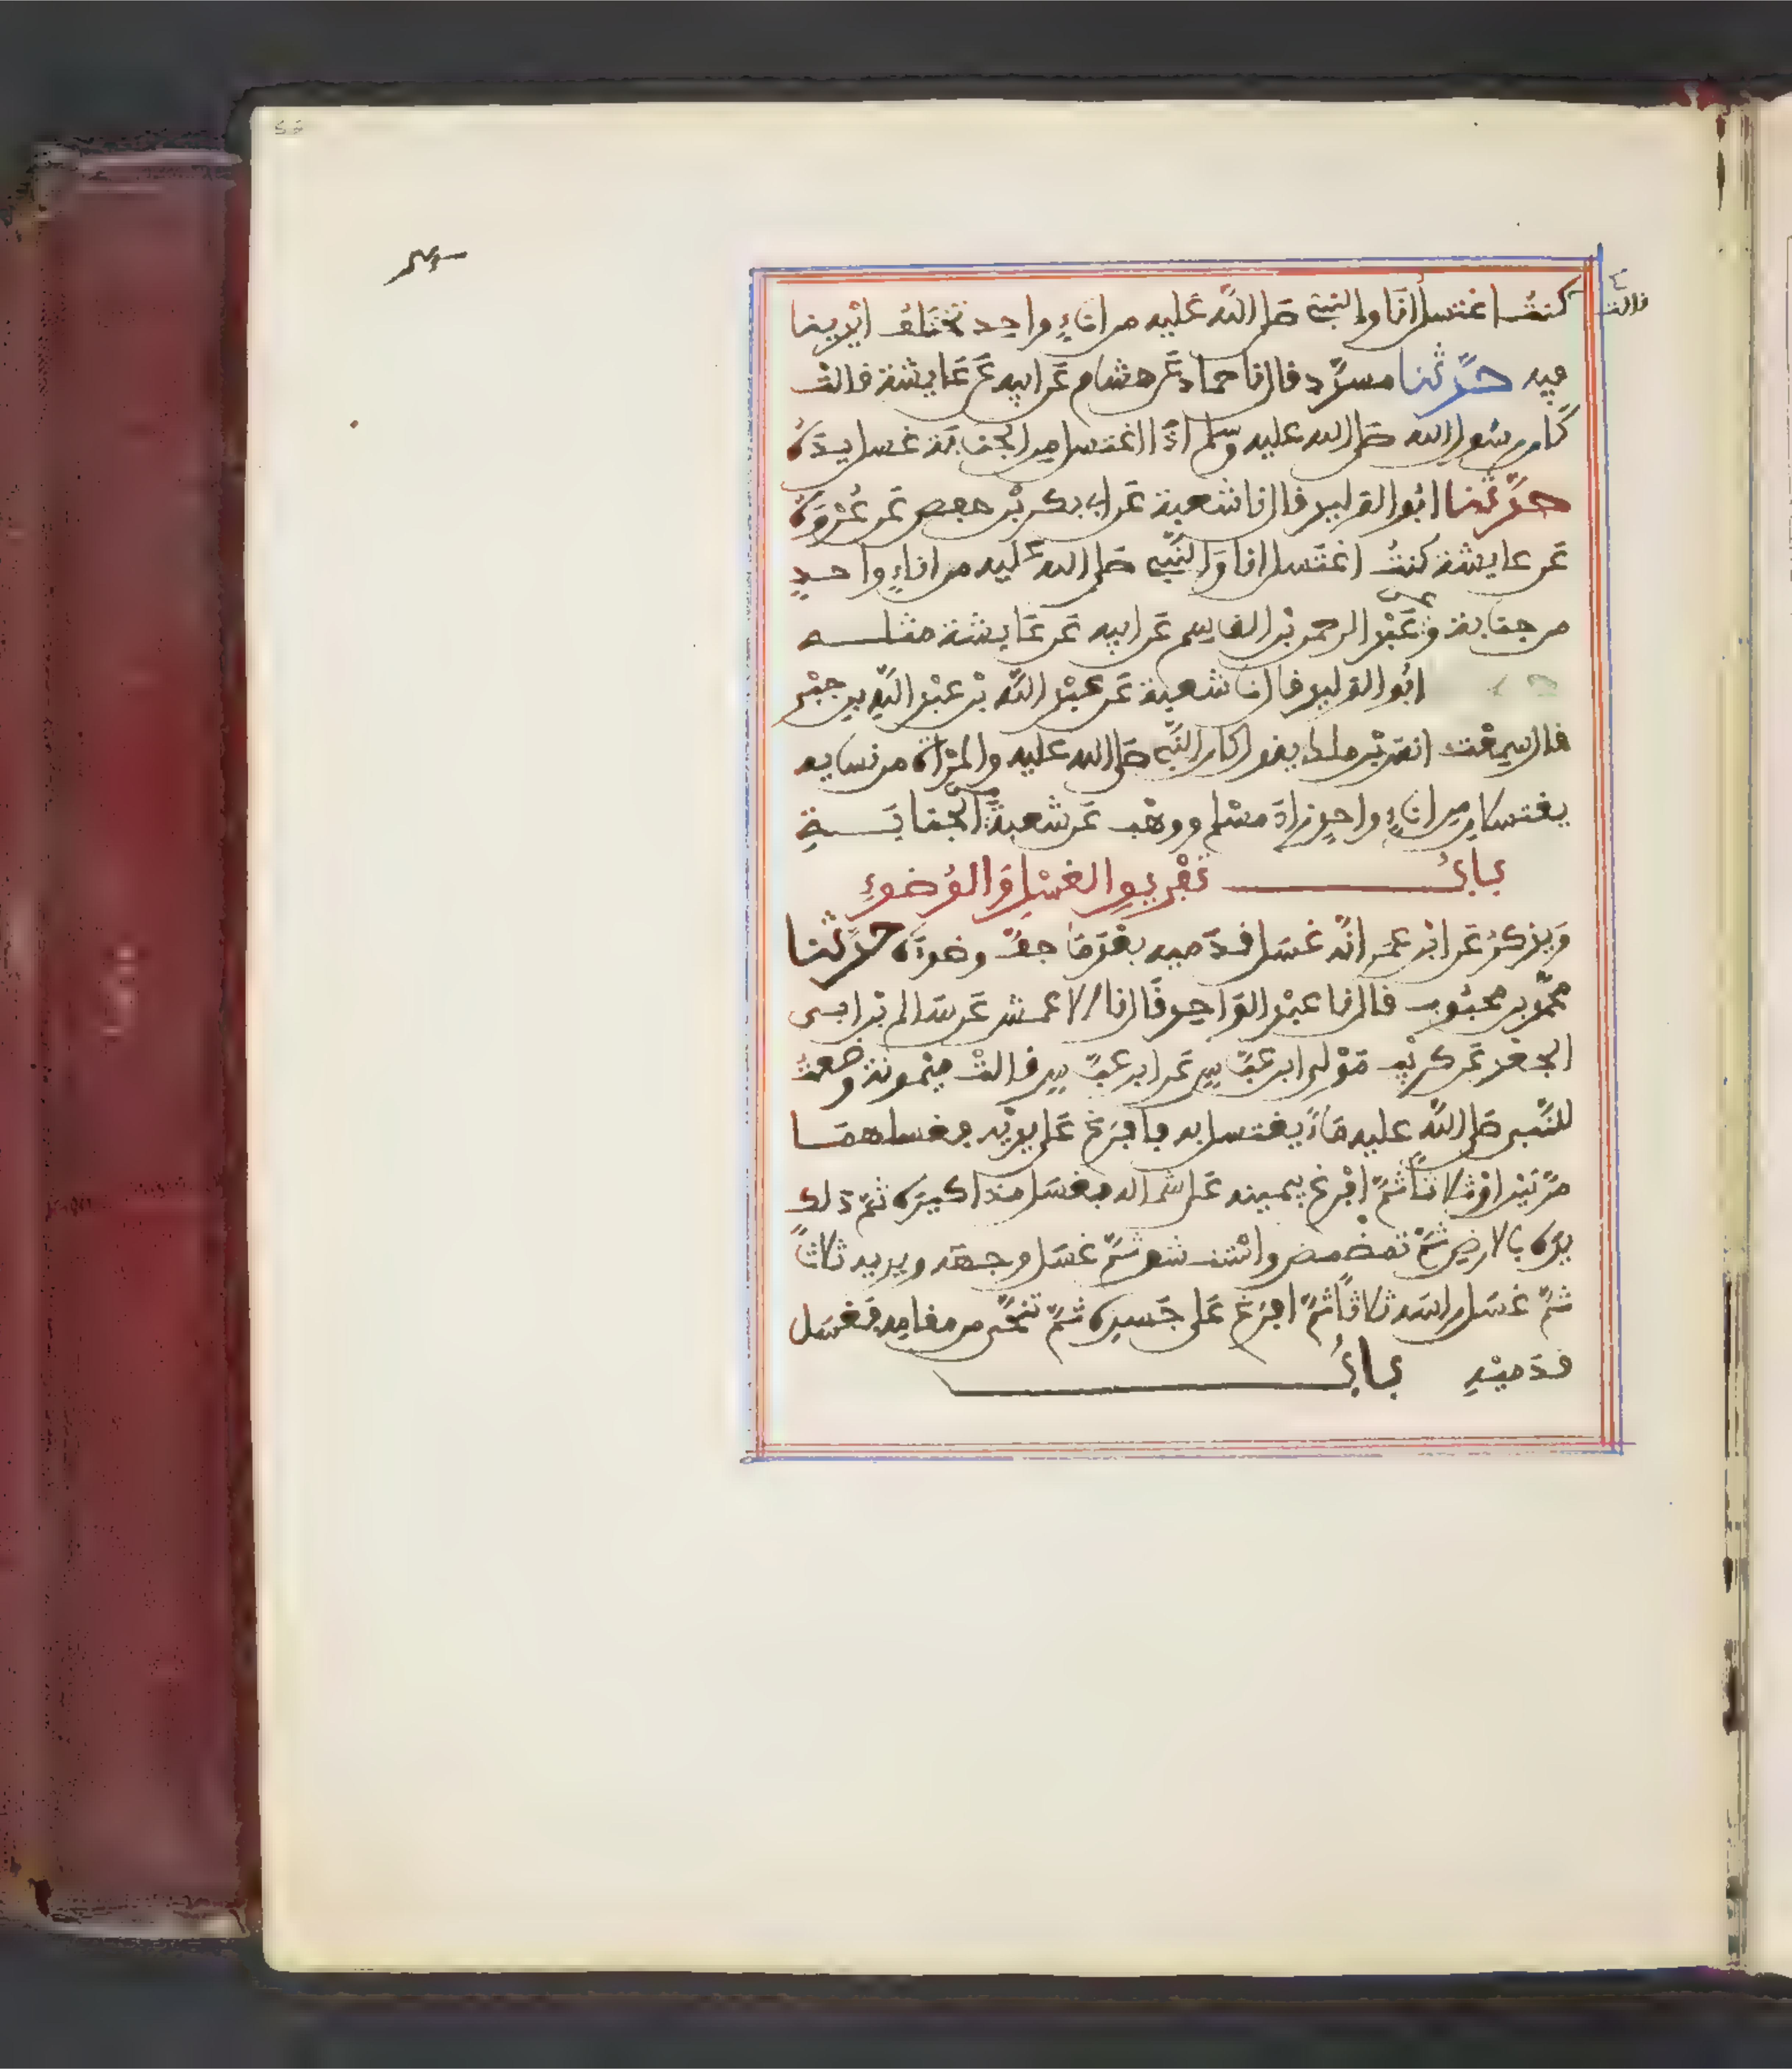 قالت
كنتُ اغتسل أنَا والنبيّ صَلى اللَّه عَليه من اناءٍ واحد تختلفُ ايْدينا
فيه حدَّثنا مسدَّد قال نا حماد عَن هشام عَن ابيه عَن عَايشة قالتْ
كَان رسُول الله صَلى الله عليه وسلم اذَا اغتسل مِن الجنابَة غسل يدَهُ
حدَّثنا ابُو الوليد قال نا شعبة عَن ابى بكر بْن حفص عَن عُرْوَةَ
عَن عايشة كنتُ اغتَسل انا وَالنَّبىّ صَلى الله عَليه من اناءٍ واحدٍ
من جنابة وعَن عَبْد الرحمن بْن القاسِم عَن ابيه عَن عَايشة مثله
ابُو الوليد قال نا شعبة عَن عبْد اللَّه بْن عبْد اللَّه بن جبْر
قال سمعْت انس بْن ملك يقول كان النَّبىّ صَلى الله عليه والمرْاة من نسايه
يغتسلان مِن اناءٍ واحدٍ زادَ مسْلم ووهْب عَن شعبةَ من الجنابَةِ
بابُ تفْريقِ الغسْلِ وَالوُضوءِ
وَيذكرُ عَن ابن عمَر انَّه غسَل قدَميه بعْدَ مَا جفَّ وضوءَه حدَّثنا
محمَّد بن محبُوب قال نا عبْد الوَاحد قَال نا الاعمش عَن سَالم بْن ابى
الجعْد عَن كريْب مَوْلى ابن عبَّاسٍ عَن ابن عبَّاسٍ قالتْ ميْمونة وضعتُ
للنَّبى صَلى اللَّه عليه مَاءً يغتسل به فافرَغ عَلى يديْه فغسلهمَا
مرَّتيْن اوْ ثلاثاً ثمَّ افْرغ بيمينه عَلى شماله فغسَل مذاكيرَه ثمَّ دَلك
يدَه بالارض ثمَّ تمضْمض واسْتنشق ثمَّ غسَل وجهَه ويديه ثلاثاً
ثمَّ غسَل راسَه ثلاثاً ثمَّ افرَغ عَلى جَسده ثمَّ تنحَّى من مقامِه فَغسَل
قدَميْهِ بابُ